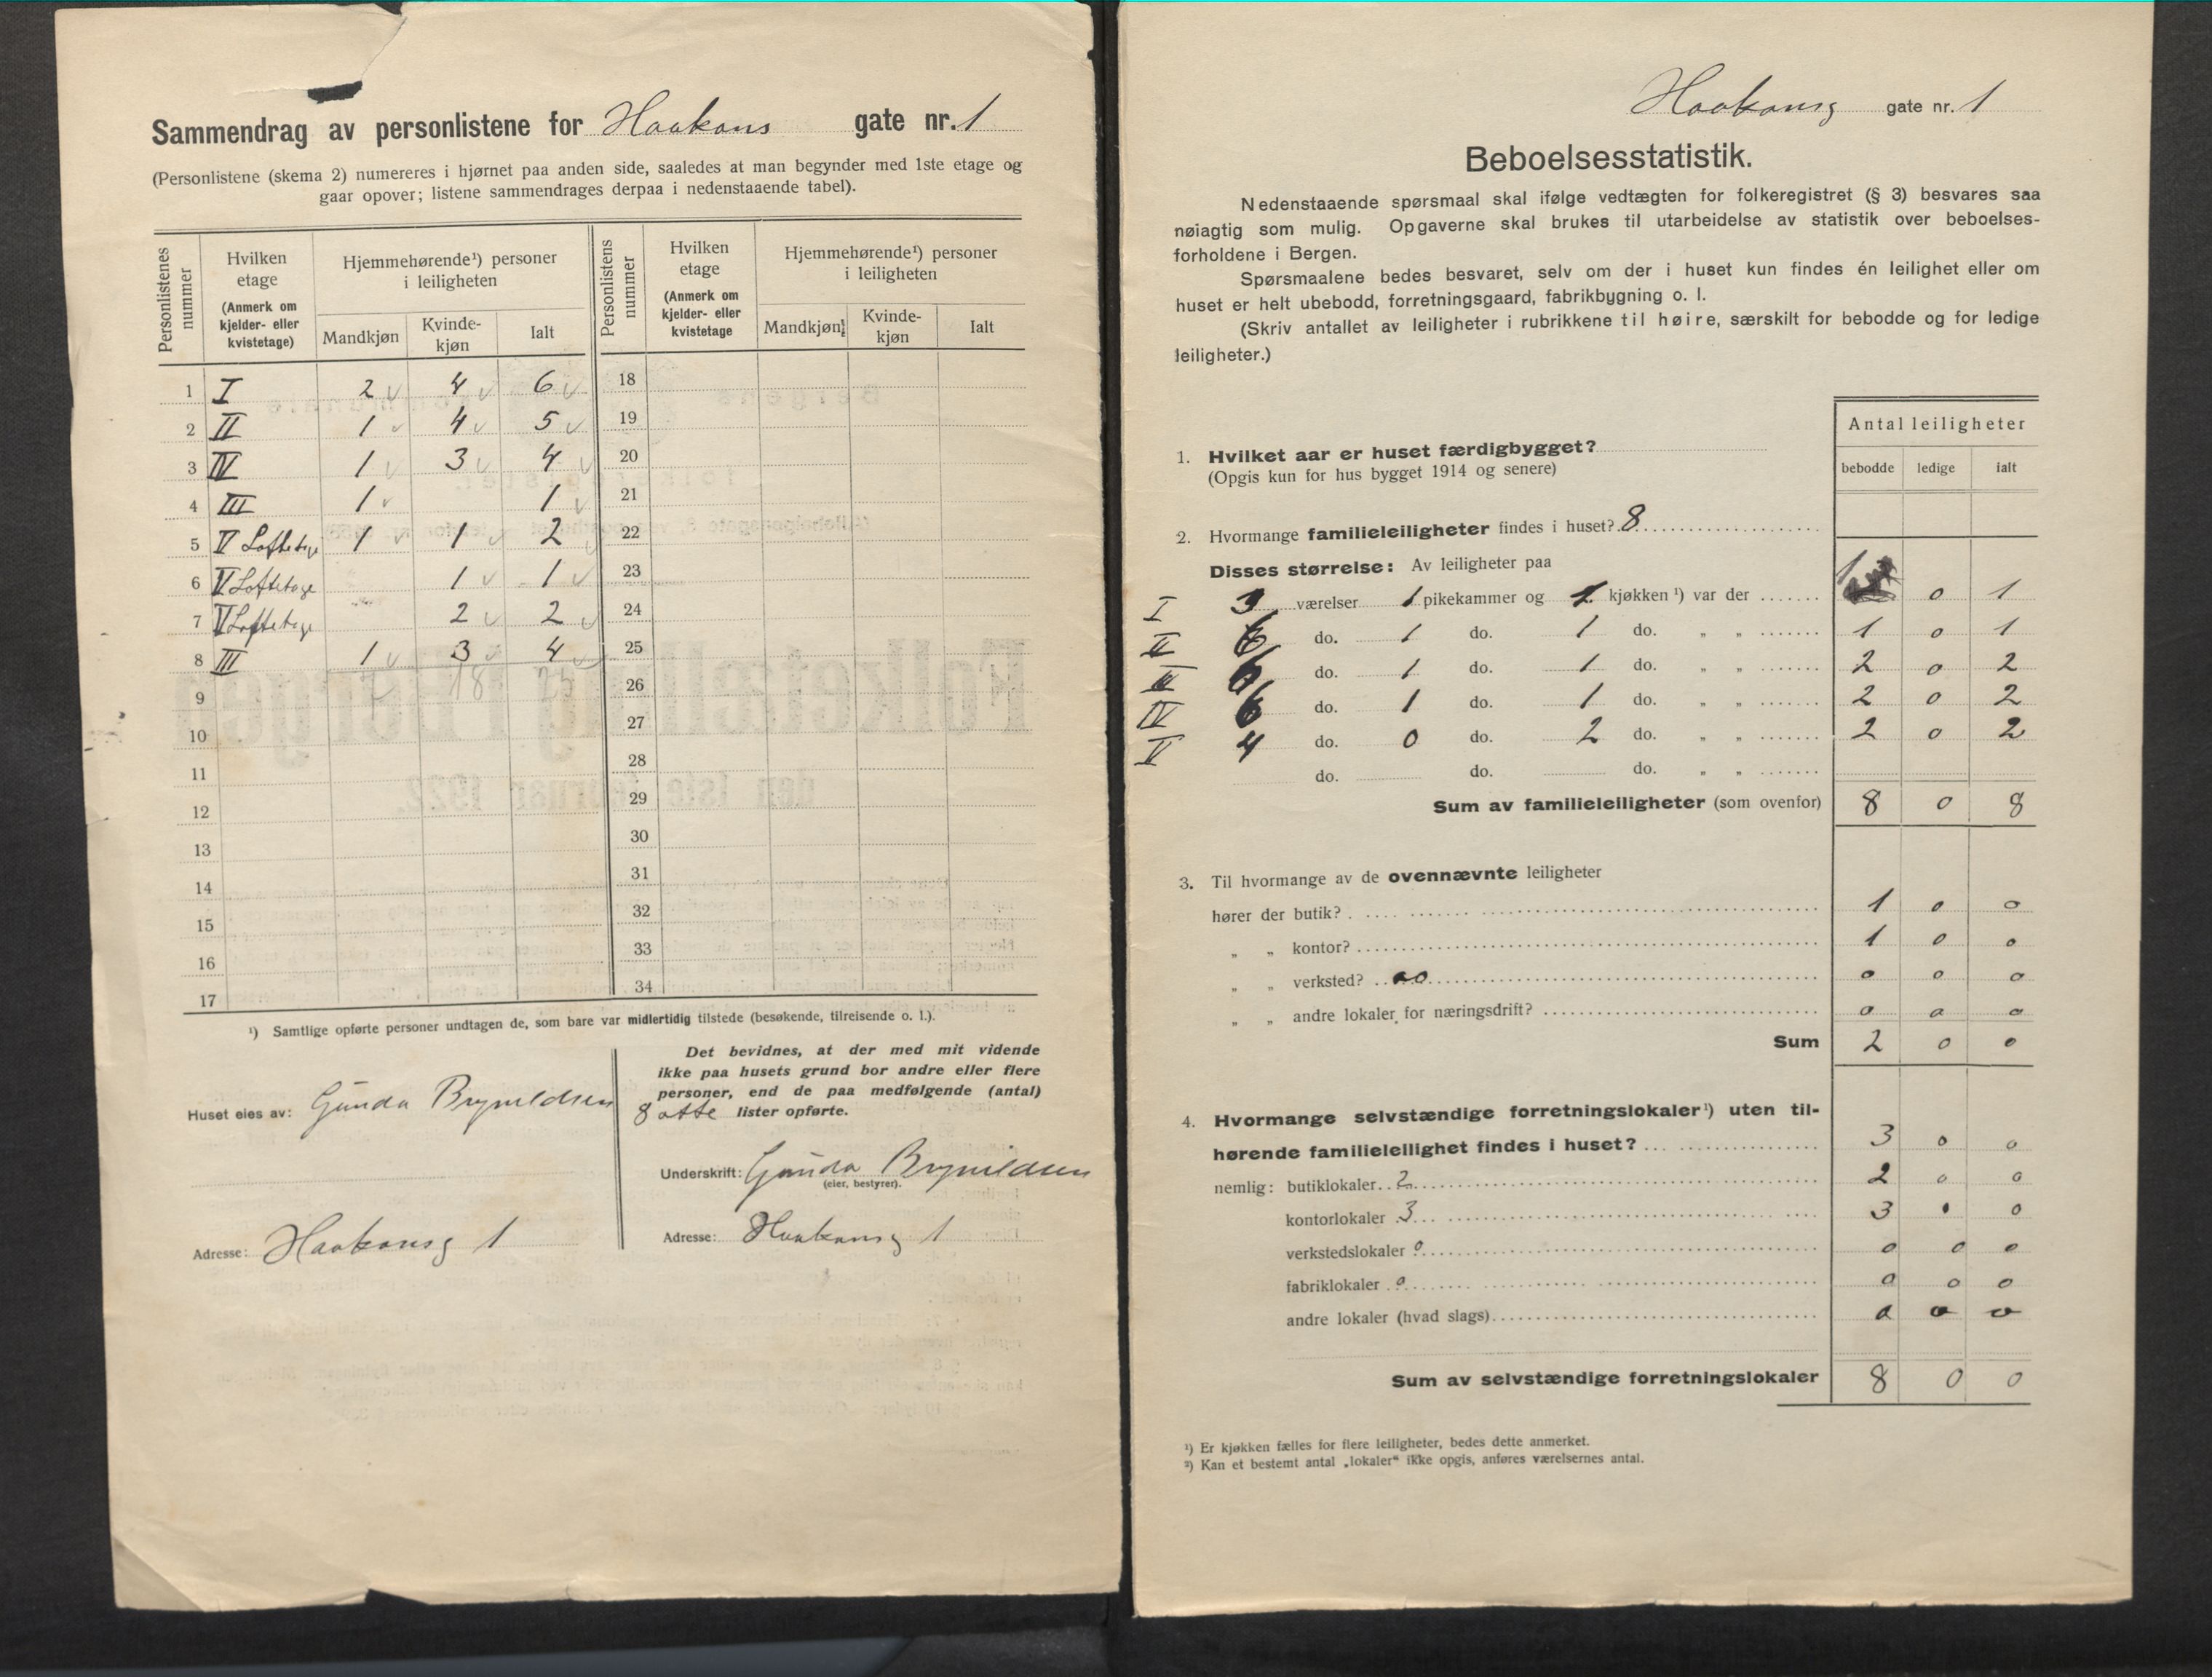 Sammendrag av personlistene for Haakons gate nr. 1
(Personlistene (skema 2) numereres i hjørnet paa anden side, saaledes at man begynder med 1ste etage og
gaar opover; listene sammendrages derpaa i nedenstaaende tabel).
Personlistenes nummer
Hvilken etage (Anmerk om kjelder- eller kvistetage)
Hjemmehørende¹) personer i leiligheten
Mandkjøn Kvinde-kjøn Ialt
Personlistens nummer
Hvilken etage (Anmerk om kjelder- eller kvistetage
Hjemmehørende¹) personer i leiligheten
Mandkjøn Kvinde-kjøn Ialt
1 I 2 4 6 18
2 II 1 4 5 19
3 IV 1 3 4 20
4 III 1 1 21
5 V Loftetage 1 1 2 22
6 V Loftetage 1 1 23
7 V Loftetage 2 2 24
8 III 1 3 4 25
9 7 18 25 26
10 27
11 28
12 29
13 30
14 31
15 32
16 33
17 34
¹) Samtlige opførte personer undtagen de, som bare var midlertidig tilstede (besøkende, tilreisende o. l.).
Huset eies av: Gunda Brynildsen
Adresse: Haakonsg 1
Det bevidnes, at der med mit vidende
ikke paa husets grund bor andre eller flere
personer, end de paa medfølgende (antal)
8 otte lister opførte.
Underskrift: Gunda Brynildsen
(eier, bestyrer).
Adresse: Haakonsg 1
Haakonsg gate nr. 1
Beboelsesstatistik.
Nedenstaaende spørsmaal skal ifølge vedtægten for folkeregistret (§ 3) besvares saa
nøiagtig som mulig. Opgaverne skal brukes til utarbeidelse av statistik over beboelses-
forholdene i Bergen.
Spørsmaalene bedes besvaret, selv om der i huset kun findes én leilighet eller om
huset er helt ubebodd, forretningsgaard, fabrikbygning o. l.
(Skriv antallet av leiligheter i rubrikkene til høire, særskilt for bebodde og for ledige
leiligheter.)
Antal leiligheter
bebodde ledige ialt
1. Hvilket aar er huset færdigbygget?
(Opgis kun for hus bygget 1914 og senere)
2. Hvormange familieleiligheter findes i huset? 8
Disses størrelse: Av leiligheter paa
I 3 værelser 1 pikekammer og 1 kjøkken¹) var der 1 0 1
II 6 do. 1 do. 1 do. " " 1 0 1
III 6 do. 1 do. 1 do. " " 2 0 2
IV 6 do. 1 do. 1 do. " " 2 0 2
V 4 do. 0 do. 2 do. " " 2 0 2
do. do. do. " "
Sum av familieleiligheter (som ovenfor) 8 0 8
3. Til hvormange av de ovennævnte leiligheter
hører der butik? 1 0 0
" " kontor? 1 0 0
" " verksted? 0 0 0
" " andre lokaler for næringsdrift? 0 0 0
Sum 2 0 0
4. Hvormange selvstændige forretningslokaler¹) uten til-
hørende familieleilighet findes i huset? 3 0 0
nemlig: butiklokaler 2 2 0 0
kontorlokaler 3 3 0 0
verkstedslokaler 0 0 0 0
fabriklokaler 0 0 0 0
andre lokaler (hvad slags) 0 0 0
Sum av selvstændige forretningslokaler 8 0 0
¹) Er kjøkken fælles for flere leiligheter, bedes dette anmerket.
²) Kan et bestemt antal „lokaler“ ikke opgis, anføres værelsernes antal.